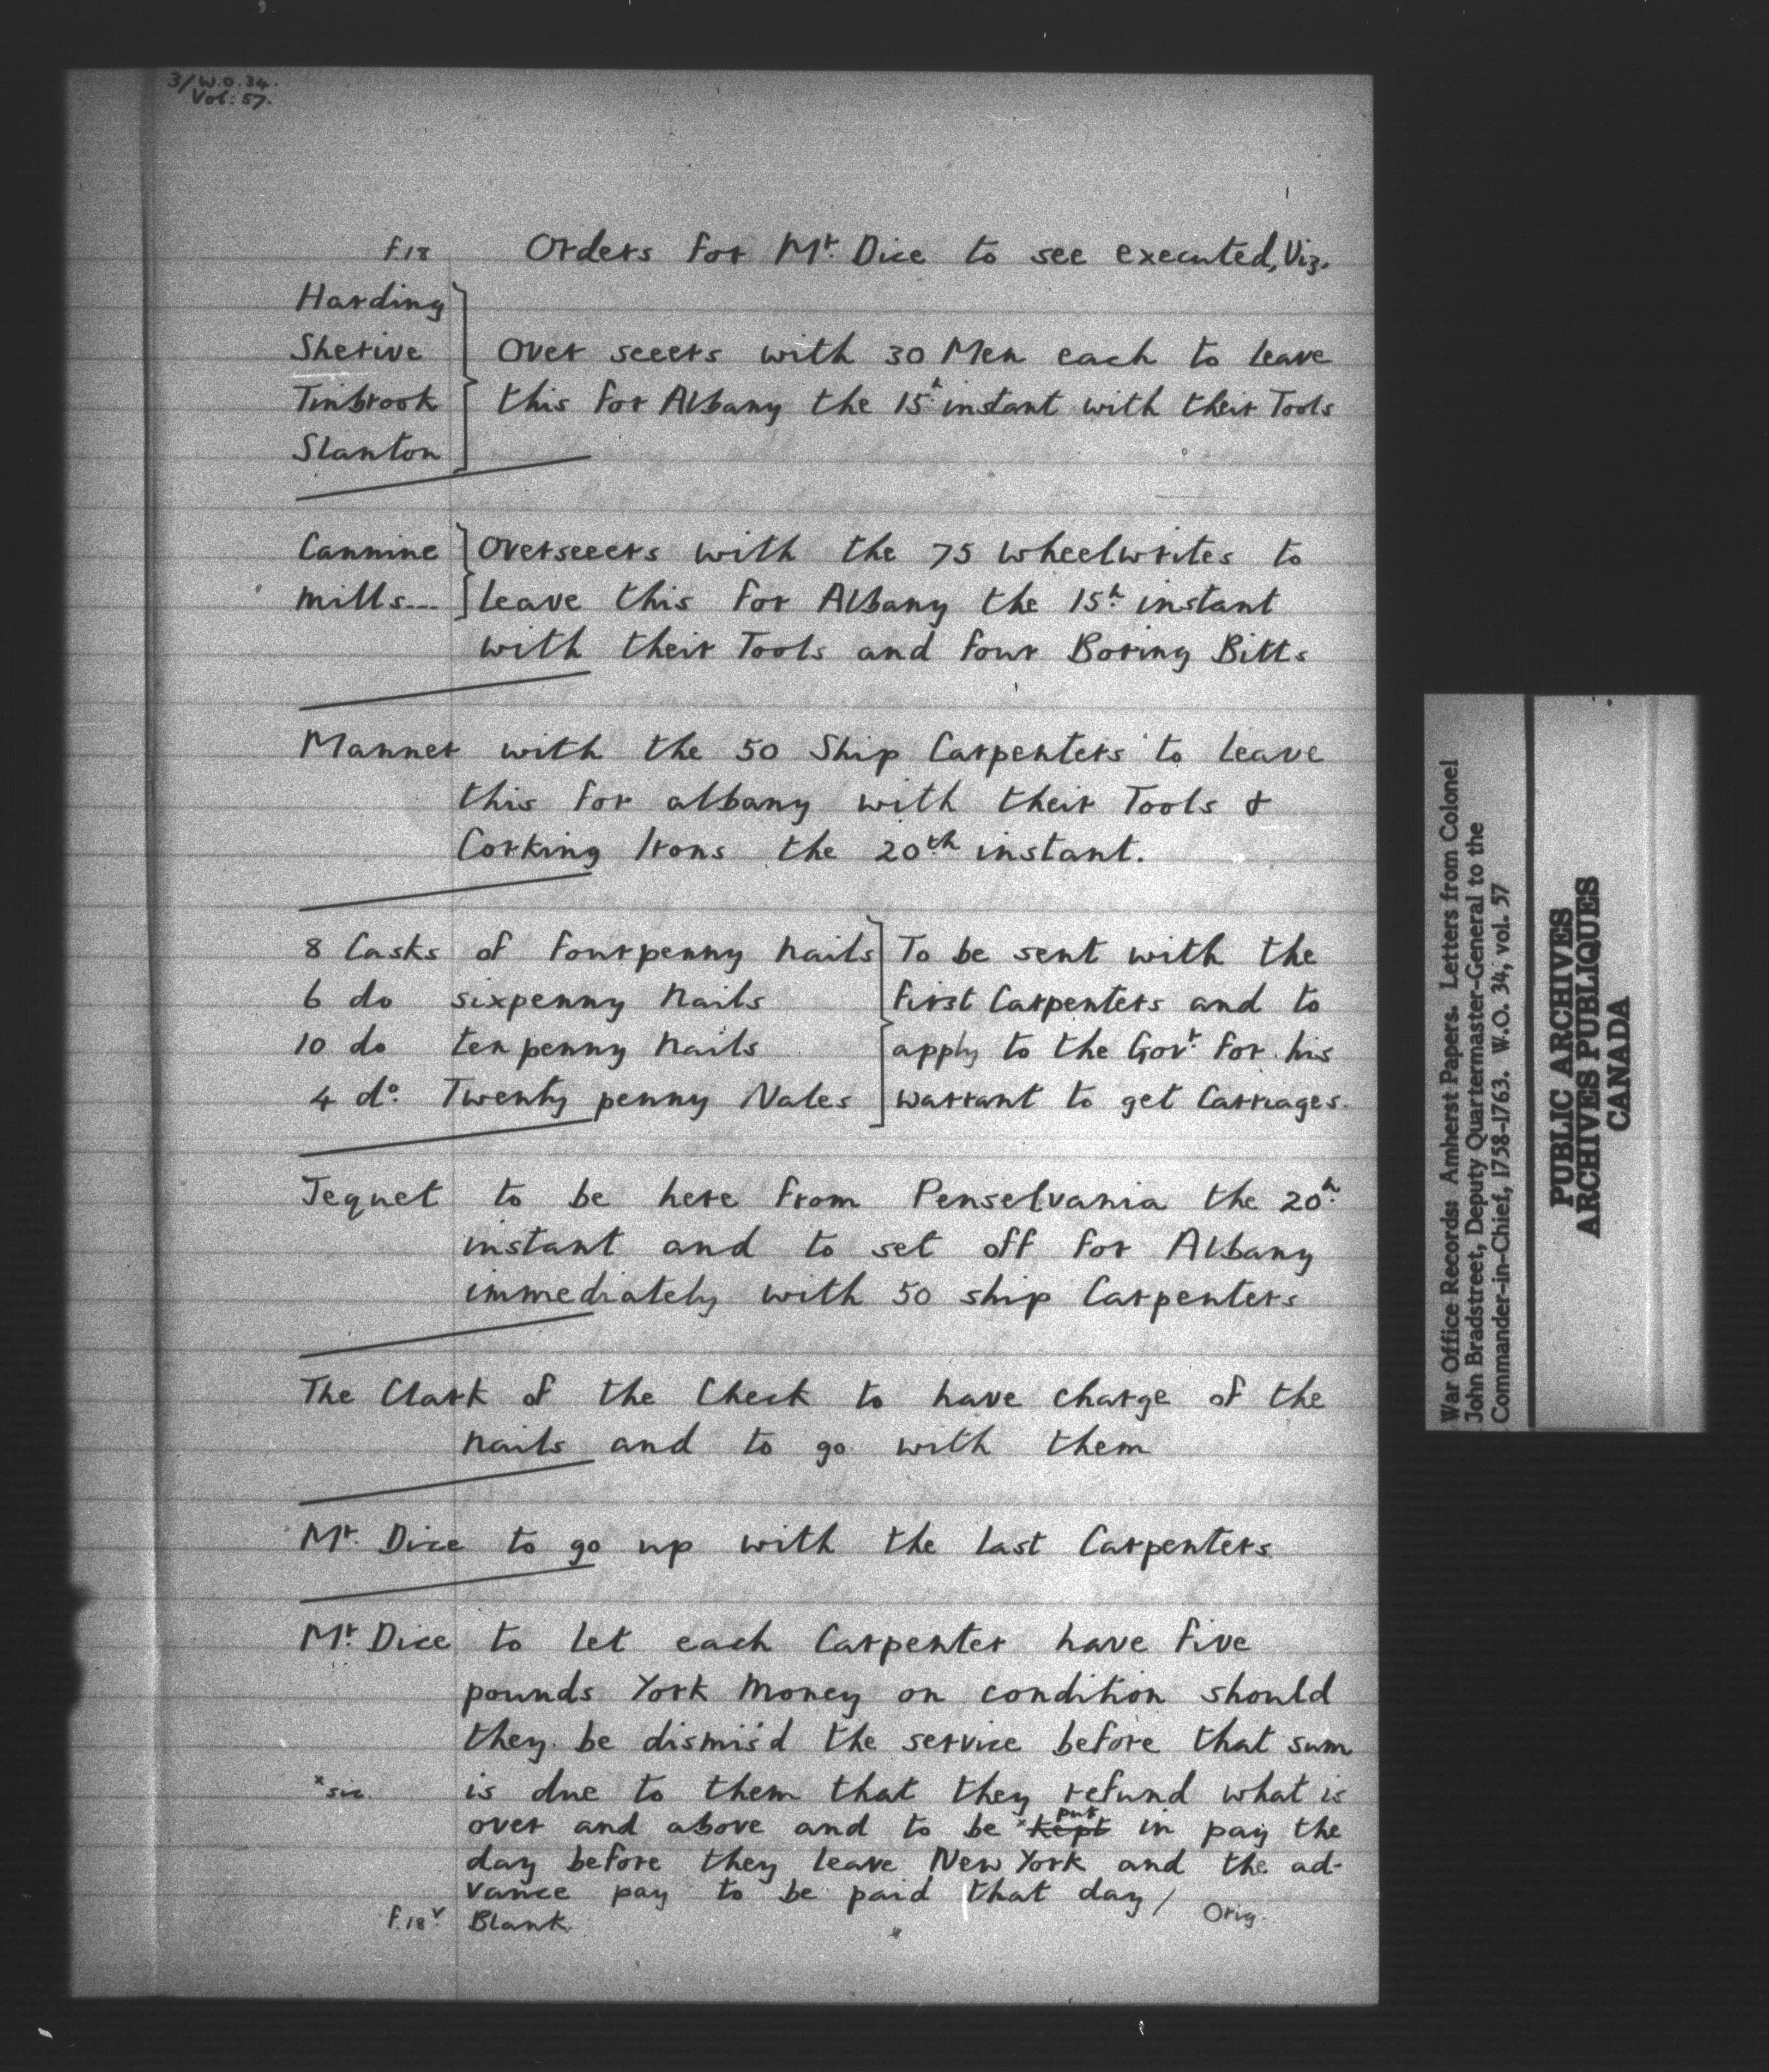 3/W.O.34.
Vol: 57.
f.18 Orders for Mr. Dice to see executed, Viz.
Harding
Sherive Over seeers with 30 Men each to leave
Tinbrook this for Albany the 15h instant with their Tools
Slanton
Cannine Overseeers with the 75 wheelwrites to
Mills... leave this for Albany the 15h instant
with their Tools and four Boring Bitts
Manner with the 50 Ship Carpenters to leave
this for albany with their Tools &
Corking Irons the 20th instant.
8 Casks of fourpenny Nails To be sent with the
6 do sixpenny Nails first Carpenters and to
10 do ten penny Nails apply to the Govr. for his
4 do. Twenty penny Nales warrant to get Carriages.
Jequet to be here from Penselvania the 20h
instant and to set off for Albany
immediately with 50 ship Carpenters
The Clark of the Check to have charge of the
Nails and to go with them
Mr. Dice to go up with the last Carpenters
Mr. Dice to let each Carpenter have five
pounds York Money on condition should
they be dismis'd the service before that sum
x sic. is due to them that they refund what is
put
over and above and to be x kept in pay the
day before they leave New York and the ad-
vance pay to be paid that day/ Orig.
f.18v Blank.
War Office Records: Amherst Papers. Letters from Colonel
John Bradstreet, Deputy Quartermaster-General to the
Commander-in-Chief, 1758-1763. W.O. 34, vol. 57
PUBLIC ARCHIVES
ARCHIVES PUBLIQUES
CANADA